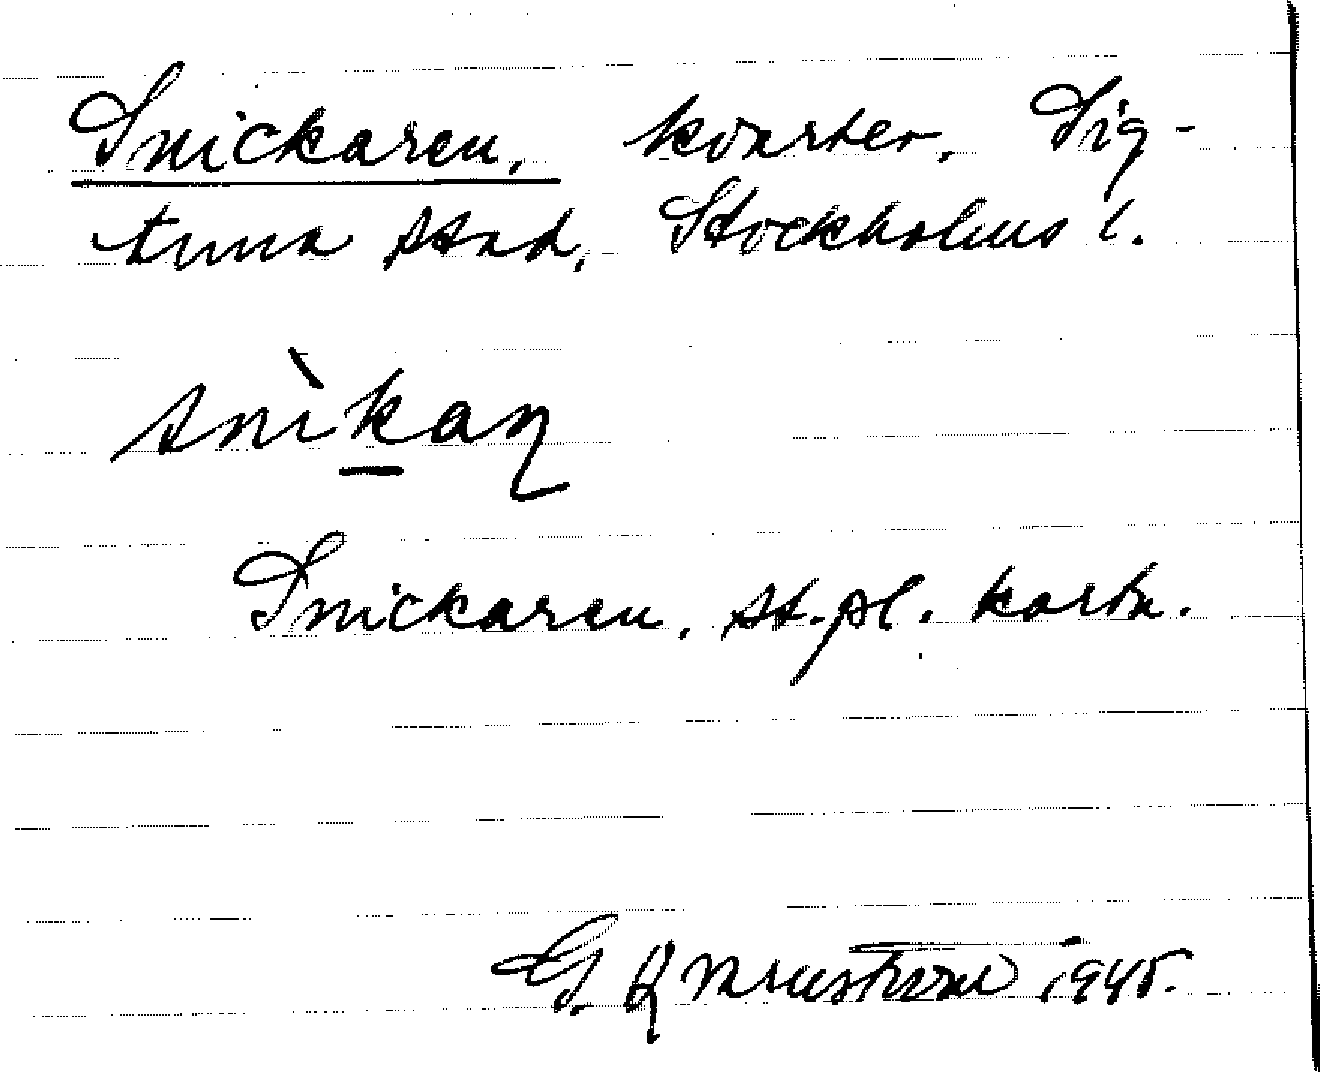 Snickaren, kvarter, Sig-
tuna stad, Stockholms l.
snìkaɳ
Snickaren, st.pl. karta.
1945.